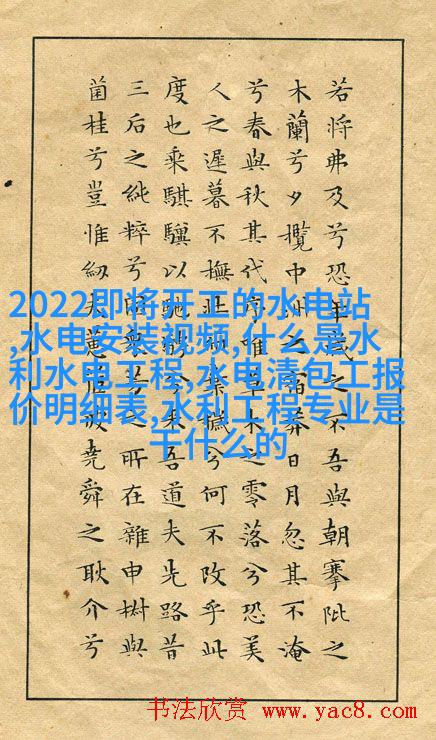 若將弗及兮恐年歲之不吾與朝搴阰之
木蘭兮夕攬中洲之宿莽日月忽其不淹
兮春與秋其代序唯草木之零落兮恐美
人之遲暮不撫壯棄穢兮何不改乎此
度也乘騏驥以馳騁兮來吾道夫先路昔
三后之純粹兮芳之所在雜申椒與
菌桂兮豈惟紉夫蕙茝彼堯舜之耿介兮
2022即将开工的水电站
,水电安装视频,什么是水
利水电工程,水电清包工报
价明细表,水利工程专业是
干什么的
书法欣赏 www.yac8.com